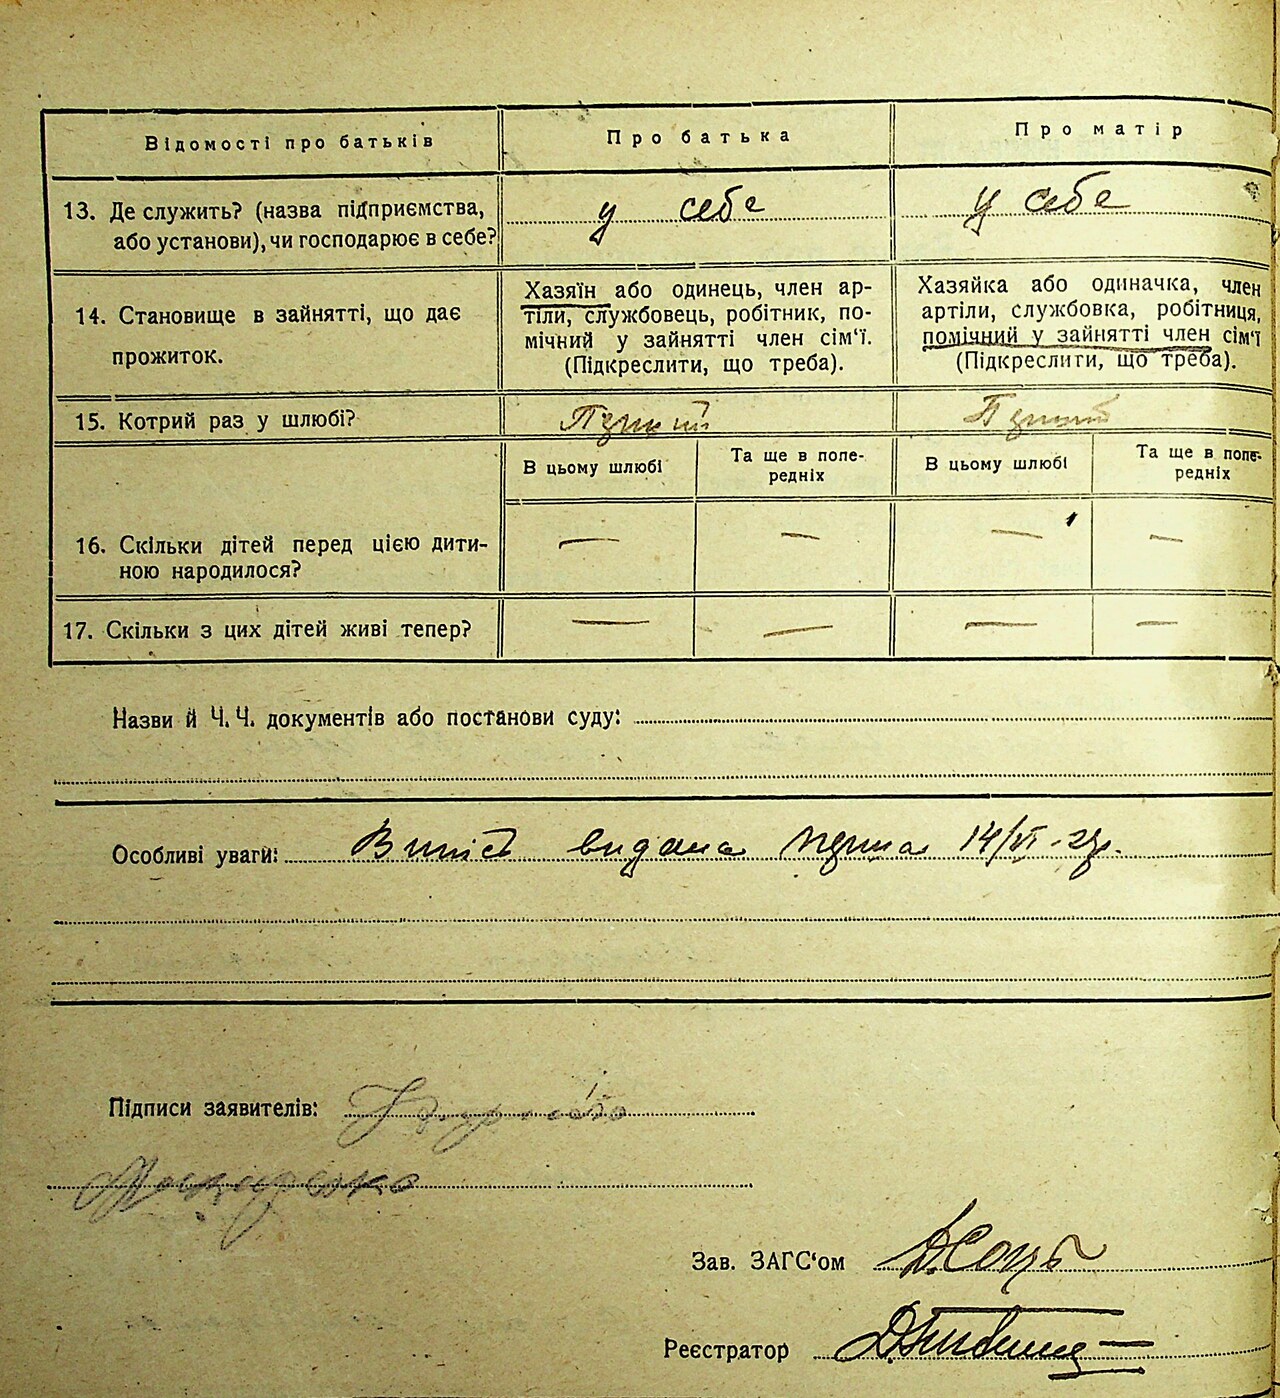 Відомості про батьків
Про батька
Про матір
13. Де служить? (назва підприємства,
або установи), чи господарює в себе?
у себе
у себе
14. Становище в зайнятті, що дає
прожиток.
Хазяїн або одинець, член ар-
тіли, службовець, робітник, по-
мічний у зайнятті член сім‘ї.
(Підкреслити, що треба).
Хазяйка або одиначка, член
артіли, службовка, робітниця,
помічний у зайнятті член сім‘ї
(Підкреслити, що треба).
15. Котрий раз у шлюбі?
В цьому шлюбі
Та ще в попе-
редніх
В цьому шлюбі
Та ще в попе-
редніх
16. Скільки дітей перед цією дити-
ною народилося?
— — — —
17. Скільки з цих дітей живі тепер?
— — — —
Назви й Ч. Ч. документів або постанови суду:
Особливі уваги: видана 14/VI
Підписи заявителів:
Зав. ЗАГС‘ом
Реєстратор